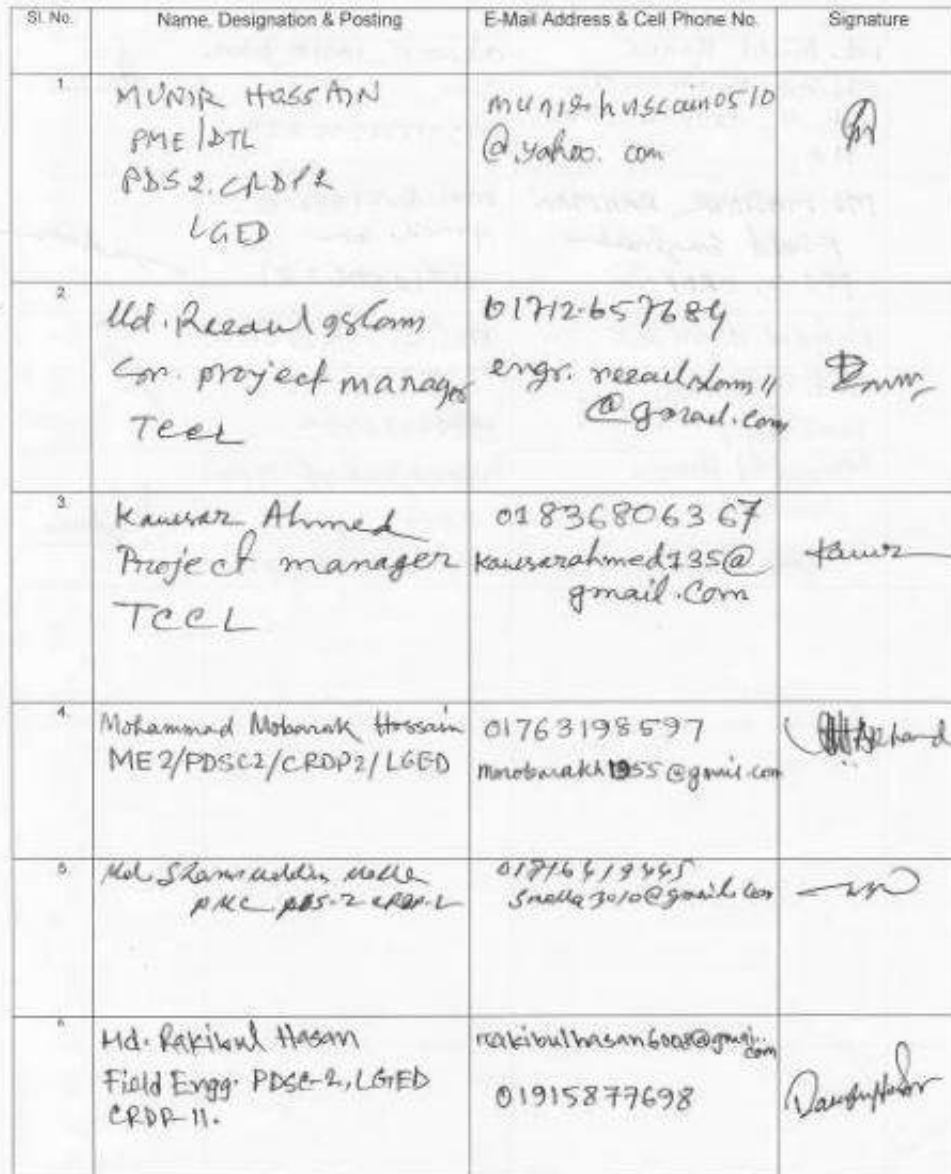 Sl. No. Name, Designation & Posting E-Mail Address & Cell Phone No. Signature
1.
MUNIR HOSSAIN
PME/DTL
PDS2.CRDP2
LGED
@yahoo.com
2.
Md. Rezaul Islam
project manager
TCCL
01712-657684
engr.
@gmail.com
3.
Kawsar Ahmed
Project manager
TCCL
01836806367
kawsarahmed135@
gmail.com
4.
Mohammad Mobarak Hossain
ME2/PDSC2/CRDP2/LGED
01763198597
@gmail.com
5.
Md. Shamsuddin Molla
smolla3010@gmail.com
6.
Md. Rakibul Hasan
Field Engg. PDSC-2, LGED
CRDP-11.
rakibulhasan6008@gmai..
com
01915877698